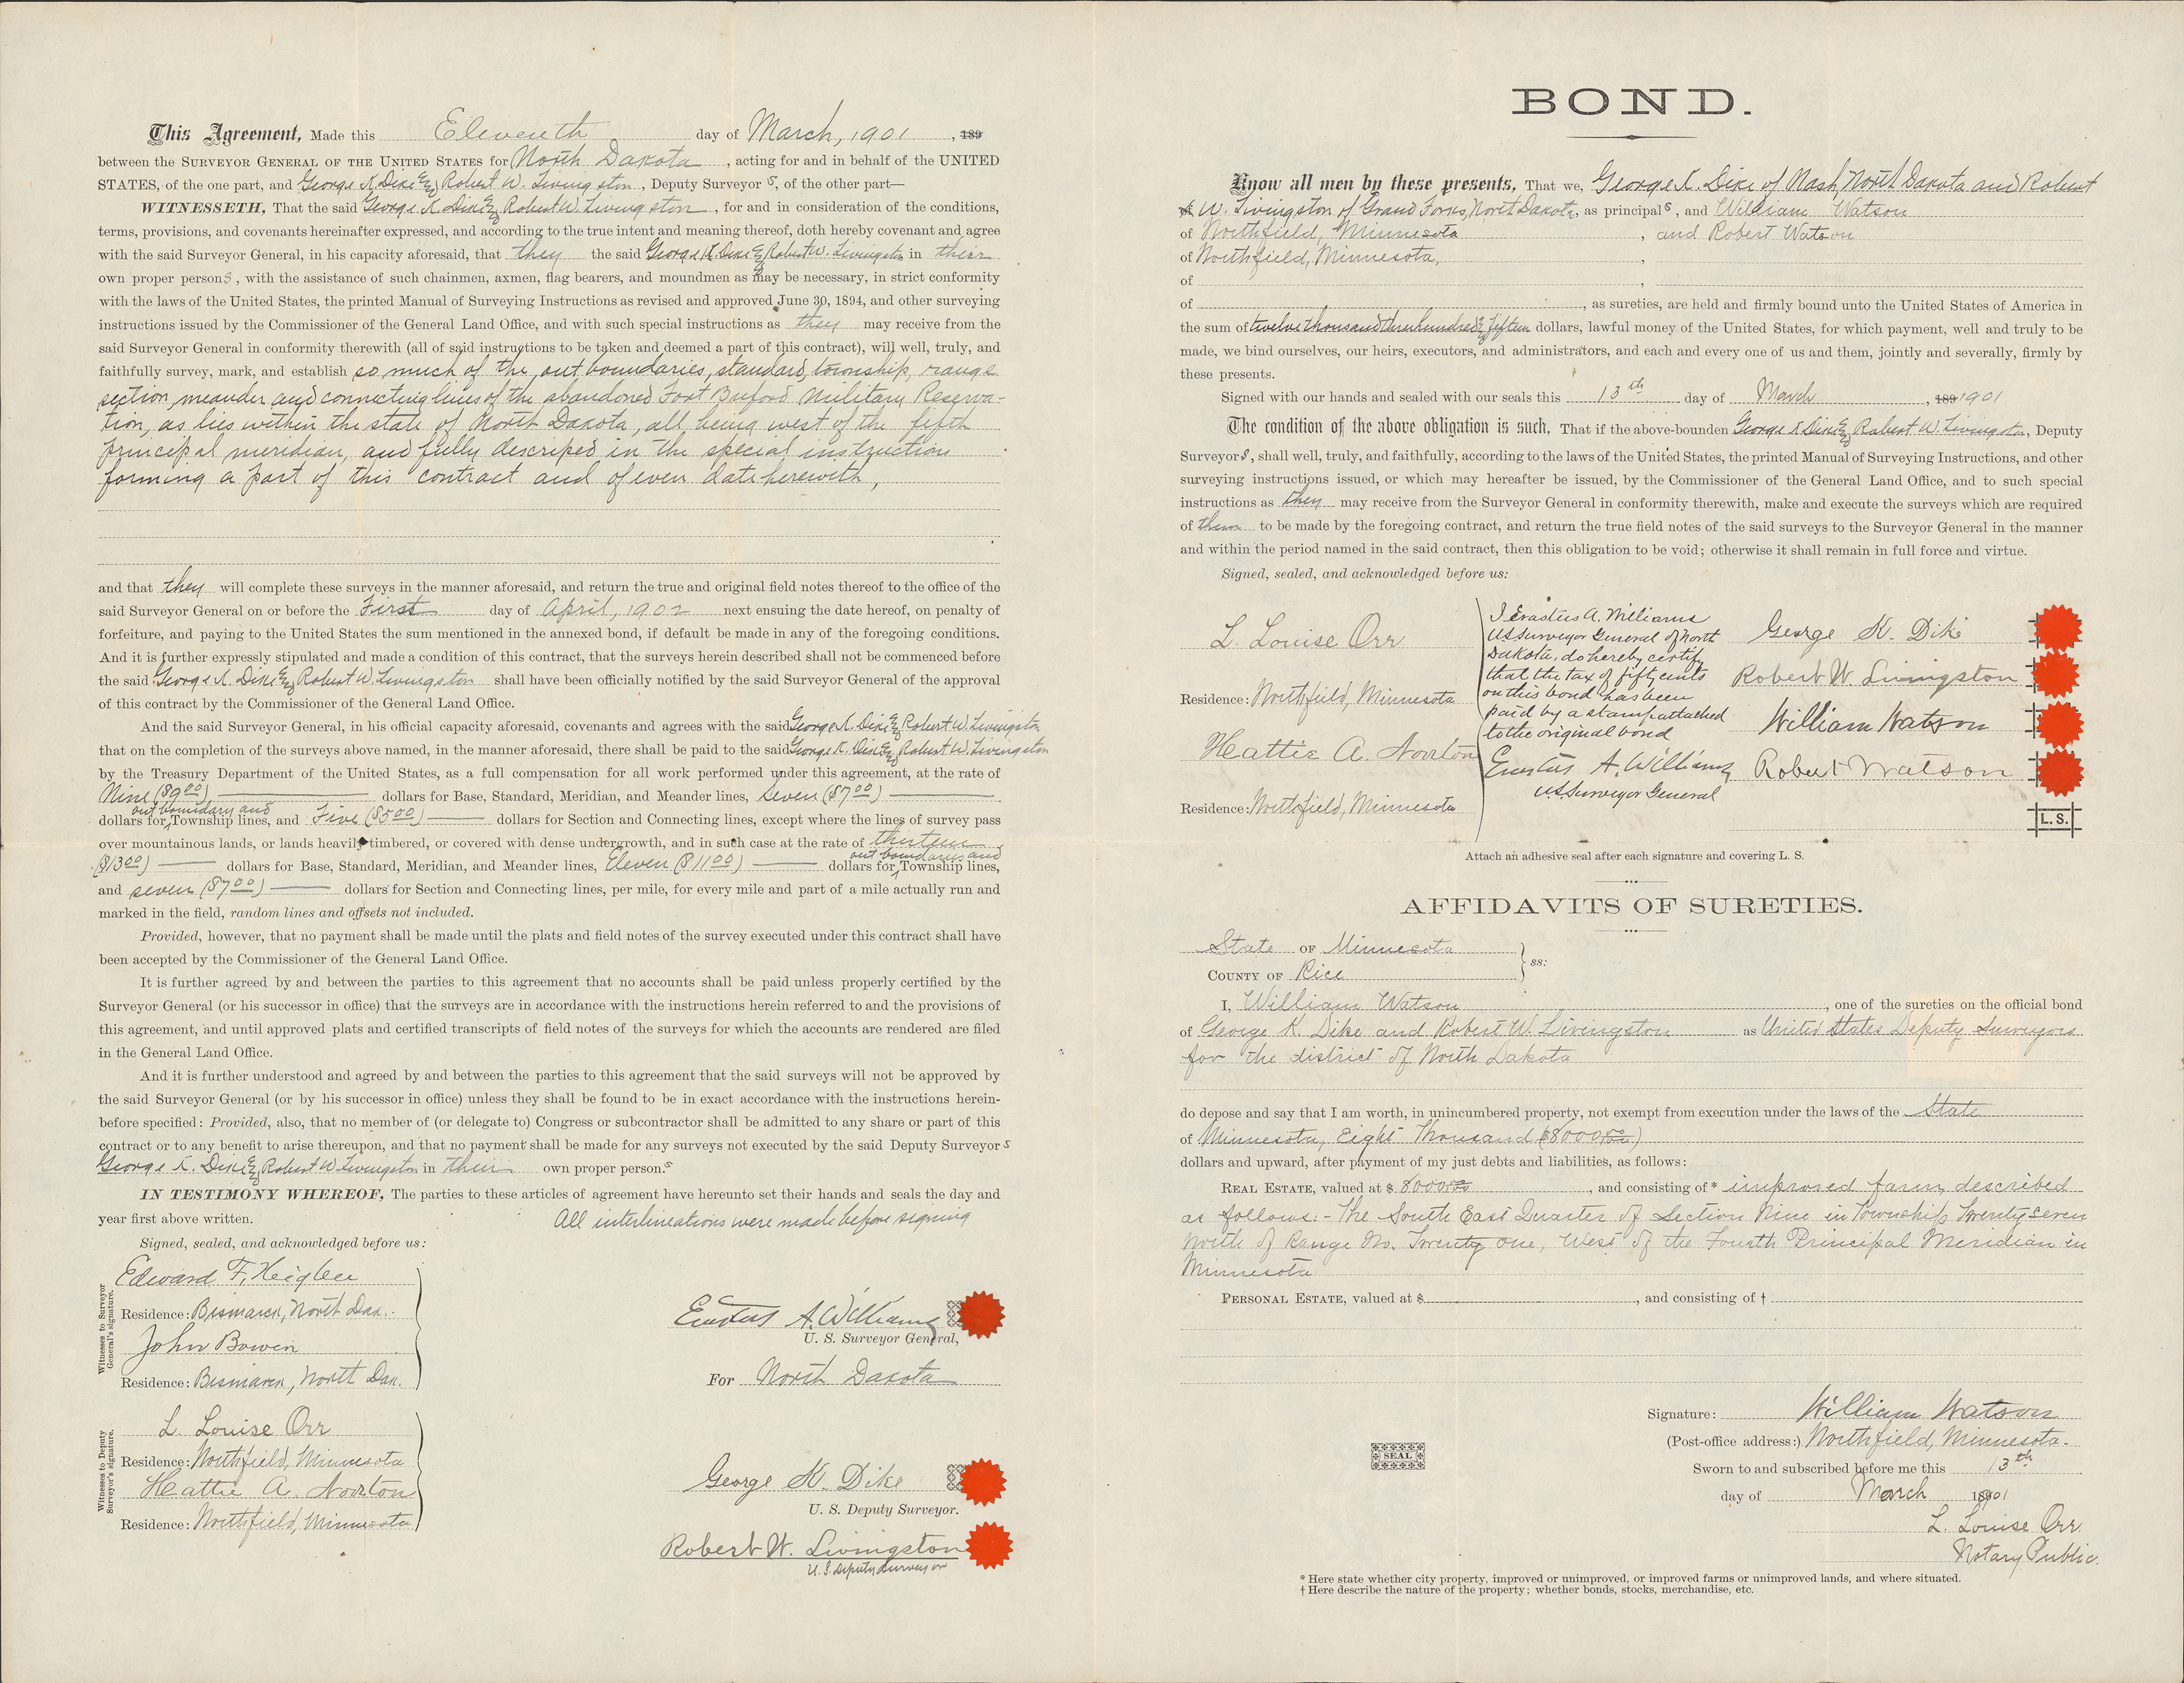 This Agreement, Made this Eleventh day of March, 1901, 189
between the SURVEYOR GENERAL OF THE UNITED STATES for North Dakota, acting for and in behalf of the UNITED
STATES, of the one part, and George K. Dike & Robert W. Livingston, Deputy Surveyor s, of the other part—
WITNESSETH, That the said George K. Dike & Robert W. Livingston, for and in consideration of the conditions,
terms, provisions, and covenants hereinafter expressed, and according to the true intent and meaning thereof, doth hereby covenant and agree
with the said Surveyor General, in his capacity aforesaid, that they the said George K. Dike & Robert W. Livingston in their
own proper persons, with the assistance of such chainmen, axmen, flag bearers, and moundmen as may be necessary, in strict conformity
with the laws of the United States, the printed Manual of Surveying Instructions as revised and approved June 30, 1894, and other surveying
instructions issued by the Commissioner of the General Land Office, and with such special instructions as they may receive from the
said Surveyor General in conformity therewith (all of said instructions to be taken and deemed a part of this contract), will well, truly, and
faithfully survey, mark, and establish so much of the out boundaries, standard, township, range
section, meander and connecting lines of the abandoned Fort Buford Military Reserva-
tion, as lies within the state of North Dakota, all being west of the fifth
principal meridian, and fully descriped in the special instructions
forming a part of this contract and of even date herewith,
and that they will complete these surveys in the manner aforesaid, and return the true and original field notes thereof to the office of the
said Surveyor General on or before the First day of April, 1902 next ensuing the date hereof, on penalty of
forfeiture, and paying to the United States the sum mentioned in the annexed bond, if default be made in any of the foregoing conditions.
And it is further expressly stipulated and made a condition of this contract, that the surveys herein described shall not be commenced before
the said George K. Dike & Robert W. Livingston shall have been officially notified by the said Surveyor General of the approval
of this contract by the Commissioner of the General Land Office.
And the said Surveyor General, in his official capacity aforesaid, covenants and agrees with the said George K. Dike & Robert W. Livingston
that on the completion of the surveys above named, in the manner aforesaid, there shall be paid to the said George K. Dike & Robert W. Livingston
by the Treasury Department of the United States, as a full compensation for all work performed under this agreement, at the rate of
Nine ($9.00) dollars for Base, Standard, Meridian, and Meander lines, seven ($7.00)
out boundary and
dollars for Township lines, and Five ($5.00) dollars for Section and Connecting lines, except where the lines of survey pass
over mountainous lands, or lands heavily timbered, or covered with dense undergrowth, and in such case at the rate of thirteen
out boundaries and
($13.00) dollars for Base, Standard, Meridian, and Meander lines, Eleven ($11.00) dollars for Township lines,
and seven ($7.00) dollars for Section and Connecting lines, per mile, for every mile and part of a mile actually run and
marked in the field, random lines and offsets not included.
Provided, however, that no payment shall be made until the plats and field notes of the survey executed under this contract shall have
been accepted by the Commissioner of the General Land Office.
It is further agreed by and between the parties to this agreement that no accounts shall be paid unless properly certified by the
Surveyor General (or his successor in office) that the surveys are in accordance with the instructions herein referred to and the provisions of
this agreement, and until approved plats and certified transcripts of field notes of the surveys for which the accounts are rendered are filed
in the General Land Office.
And it is further understood and agreed by and between the parties to this agreement that the said surveys will not be approved by
the said Surveyor General (or by his successor in office) unless they shall be found to be in exact accordance with the instructions herein-
before specified: Provided, also, that no member of (or delegate to) Congress or subcontractor shall be admitted to any share or part of this
contract or to any benefit to arise thereupon, and that no payment shall be made for any surveys not executed by the said Deputy Surveyor s
George K. Dike & Robert W Livingston in their own proper person.s
IN TESTIMONY WHEREOF, The parties to these articles of agreement have hereunto set their hands and seals the day and
year first above written. All interlineations were made before signing
Signed, sealed, and acknowledged before us:
Witnesses to Surveyor General's signature.
Edward F. Heigbee
Residence: Bismarck, North Dak.
John Bowen
Residence: Bismarck, North Dak.
Erastus A. Williams
U. S. Surveyor General,
For North Dakota
Witnesses to Deputy Surveyor's signature.
L. Louise Orr
Residence: Northfield, Minnesota
Hattie A. Norton
Residence: Northfield, Minnesota
George K. Dike
U. S. Deputy Surveyor.
Robert W. Livingston
U. S. Deputy Surveyor
BOND.
Know all men by these presents, That we, George K. Dike of Nash, North Dakota and Robert
W. Livingston of Grand Forks, North Dakota, as principals, and William Watson
of Northfield, Minnesota, and Robert Watson
of Northfield, Minnesota,
of
of , as sureties, are held and firmly bound unto the United States of America in
the sum of twelve thousand three hundred & fifteen dollars, lawful money of the United States, for which payment, well and truly to be
made, we bind ourselves, our heirs, executors, and administrators, and each and every one of us and them, jointly and severally, firmly by
these presents.
Signed with our hands and sealed with our seals this 13th day of March, 189 1901
The condition of the above obligation is such, That if the above-bounden George K Dike & Robert W. Livingston, Deputy
Surveyors, shall well, truly, and faithfully, according to the laws of the United States, the printed Manual of Surveying Instructions, and other
surveying instructions issued, or which may hereafter be issued, by the Commissioner of the General Land Office, and to such special
instructions as they may receive from the Surveyor General in conformity therewith, make and execute the surveys which are required
of them to be made by the foregoing contract, and return the true field notes of the said surveys to the Surveyor General in the manner
and within the period named in the said contract, then this obligation to be void; otherwise it shall remain in full force and virtue.
Signed, sealed, and acknowledged before us:
L. Louise Orr
Residence: Northfield, Minnesota
Hattie A. Norton
Residence: Northfield, Minnesota
I Erastus A. Williams
US Surveyor General of North
Dakota, do hereby certify
that the tax of fifty cents
on this bond has been
paid by a stamp attached
to the original bond
Erastus A. Williams
U.S. Surveyor General
George K. Dike
Robert W. Livingston
William Watson
Robert Watson
L. S.
Attach an adhesive seal after each signature and covering L. S.
AFFIDAVITS OF SURETIES.
State OF Minnesota
COUNTY OF Rice
ss:
I, William Watson, one of the sureties on the official bond
of George K. Dike and Robert W. Livingston as United States Deputy Surveyors
for the district of North Dakota
do depose and say that I am worth, in unincumbered property, not exempt from execution under the laws of the State
of Minnesota, Eight Thousand ($8000.00)
dollars and upward, after payment of my just debts and liabilities, as follows:
REAL ESTATE, valued at $ 8000.00, and consisting of * improved farm, described
as follows:- The South East Quarter of Section Nine in Township Twenty seven
North of Range No. Twenty one, West of the Fourth Principal Meridian in
Minnesota
PERSONAL ESTATE, valued at $ , and consisting of †
SEAL
Signature: William Watson
(Post-office address:) Northfield, Minnesota.
Sworn to and subscribed before me this 13th
day of March 1901
L. Louise Orr
Notary Public.
* Here state whether city property, improved or unimproved, or improved farms or unimproved lands, and where situated.
† Here describe the nature of the property; whether bonds, stocks, merchandise, etc.